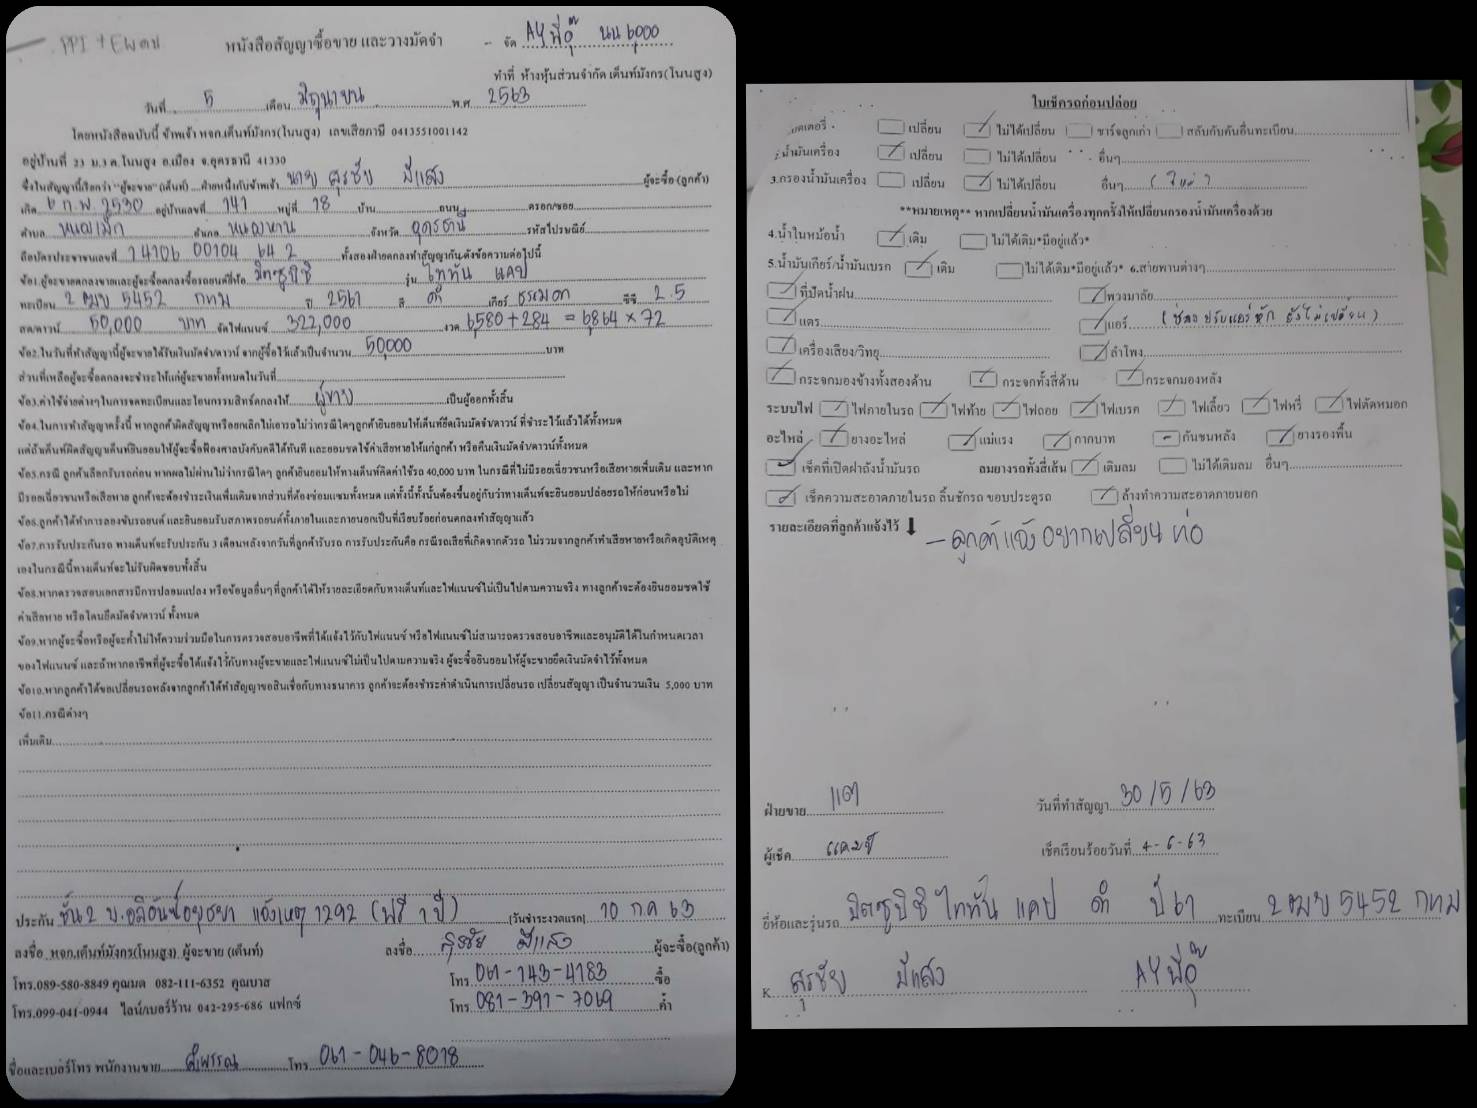 PPI + EWตบ
หนังสือสัญญาซื้อขาย และวางมัดจำ
- จัด AYพี่อุ๊ นน 6000
ทำที่ ห้างหุ้นส่วนจำกัด เต็นท์มังกร(โนนสูง)
วันที่ 5 เดือน มิถุนายน พ.ศ 2563
โดยหนังสือฉบับนี้ ข้าพเจ้า หจก.เต็นท์มังกร(โนนสูง) เลขเสียภาษี 0413551001142
อยู่บ้านที่ 23 ม.3 ต.โนนสูง อ.เมือง จ.อุดรธานี 41330
ซึ่งในสัญญานี้เรียกว่า "ผู้จะขาย" (เต็นท์) ฝ่ายหนึ่งกับข้าพเจ้า นาย สุรชัย มีแสง ผู้จะซื้อ (ลูกค้า)
เกิด 6 ก.พ. 2530 อยู่บ้านเลขที่ 141 หมู่ที่ 18 บ้าน ถนน ตรอก/ซอย
ตำบล หนองเม็ก อำเภอ หนองหาน จังหวัด อุดรธานี รหัสไปรษณีย์
ถือบัตรประชาชนเลขที่ 14106 00104 64 2 ทั้งสองฝ่ายตกลงทำสัญญากันดังข้อความต่อไปนี้
ข้อ1.ผู้จะขายตกลงขายและผู้จะซื้อตกลงซื้อรถยนต์ยี่ห้อ มิตซูบิชิ รุ่น ไททัน แคป
ทะเบียน 2 ฒบ 5452 กทม ปี 2561 สี ดำ เกียร์ ธรรมดา ซีซี 2.5
สด/ดาวน์ 50,000 บาท จัดไฟแนนซ์ 322,000 งวด 6580+284 = 6864 x 72
ข้อ2.ในวันที่ทำสัญญานี้ผู้จะขายได้รับเงินมัดจำ/ดาวน์ จากผู้ซื้อไว้แล้วเป็นจำนวน 50,000 บาท
ส่วนที่เหลือผู้จะซื้อตกลงจะชำระให้แก่ผู้จะขายทั้งหมดในวันที่
ข้อ3.ค่าใช้จ่ายต่างๆในการจดทะเบียนและโอนกรรมสิทธิ์ตกลงให้ ผู้ขาย เป็นผู้ออกทั้งสิ้น
ข้อ4.ในการทำสัญญาครั้งนี้ หากลูกค้าผิดสัญญาหรือยกเลิกไม่เอารถไม่ว่ากรณีใดๆลูกค้ายินยอมให้เต็นท์ยึดเงินมัดจำ/ดาวน์ ที่ชำระไว้แล้วได้ทั้งหมด
แต่ถ้าเต็นท์ผิดสัญญาเต็นท์ยินยอมให้ผู้จะซื้อฟ้องศาลบังคับคดีได้ทันที และยอมชดใช้ค่าเสียหายให้แก่ลูกค้า หรือคืนเงินมัดจำ/ดาวน์ทั้งหมด
ข้อ5.กรณี ลูกค้าเลือกรับรถก่อน หากผลไม่ผ่านไม่ว่ากรณีใดๆ ลูกค้ายินยอมให้ทางเต็นท์คิดค่าใช้รถ 40,000 บาท ในกรณีที่ไม่มีรอยเฉี่ยวชนหรือเสียหายเพิ่มเติม และหาก
มีรอยเฉี่ยวชนหรือเสียหาย ลูกค้าจะต้องชำระเงินเพิ่มเติมจากส่วนที่ต้องซ่อมแซมทั้งหมด แต่ทั้งนี้ทั้งนั้นต้องขึ้นอยู่กับว่าทางเต็นท์จะยินยอมปล่อยรถให้ก่อนหรือไม่
ข้อ6.ลูกค้าได้ทำการลองขับรถยนต์ และยินยอมรับสภาพรถยนต์ทั้งภายในและภายนอกเป็นที่เรียบร้อยก่อนตกลงทำสัญญาแล้ว
ข้อ7.การรับประกันรถ ทางเต็นท์จะรับประกัน 3 เดือนหลังจากวันที่ลูกค้ารับรถ การรับประกันคือ กรณีรถเสียที่เกิดจากตัวรถ ไม่รวมจากลูกค้าทำเสียหายหรือเกิดอุบัติเหตุ
เองในกรณีนี้ทางเต็นท์จะไม่รับผิดชอบทั้งสิ้น
ข้อ8.หากตรวจสอบเอกสารมีการปลอมแปลง หรือข้อมูลอื่นๆที่ลูกค้าได้ให้รายละเอียดกับทางเต็นท์และไฟแนนซ์ไม่เป็นไปตามความจริง ทางลูกค้าจะต้องยินยอมชดใช้
ค่าเสียหาย หรือโดนยึดมัดจำ/ดาวน์ ทั้งหมด
ข้อ9.หากผู้จะซื้อหรือผู้จะค้ำไม่ให้ความร่วมมือในการตรวจสอบอาชีพที่ได้แจ้งไว้กับไฟแนนซ์ หรือไฟแนนซ์ไม่สามารถตรวจสอบอาชีพและอนุมัติได้ในกำหนดเวลา
ของไฟแนนซ์ และถ้าหากอาชีพที่ผู้จะซื้อได้แจ้งไว้กับทางผู้จะขายและไฟแนนซ์ไม่เป็นไปตามความจริง ผู้จะซื้อยินยอมให้ผู้จะขายยึดเงินมัดจำไว้ทั้งหมด
ข้อ10.หากลูกค้าได้ขอเปลี่ยนรถหลังจากลูกค้าได้ทำสัญญาขอสินเชื่อกับทางธนาคาร ลูกค้าจะต้องชำระค่าดำเนินการเปลี่ยนรถ เปลี่ยนสัญญา เป็นจำนวนเงิน 5,000 บาท
ข้อ11.กรณีต่างๆ
เพิ่มเติม
ประกัน ชั้น2 บ.อลิอันซ์อยุธยา แจ้งเหตุ 1292 (ฟรี 1 ปี) (วันชำระงวดแรก) 10 ก.ค 63
ลงชื่อ หจก.เต็นท์มังกร(โนนสูง) ผู้จะขาย (เต็นท์) ลงชื่อ สุรชัย มีแสง ผู้จะซื้อ(ลูกค้า)
โทร.089-580-8849 คุณมด 082-111-6352 คุณบาส โทร 061-143-4183 ซื้อ
โทร.099-041-0944 ไลน์/เบอร์ร้าน 042-295-686 แฟกซ์ โทร 081-391-7069 ค้ำ
ชื่อและเบอร์โทร พนักงานขาย โทร 061-046-8018
ใบเช็ครถก่อนปล่อย
บตเตอรี่ เปลี่ยน ไม่ได้เปลี่ยน ชาร์จลูกเก่า สลับกับคันอื่นทะเบียน
2.น้ำมันเครื่อง เปลี่ยน ไม่ได้เปลี่ยน อื่นๆ
3.กรองน้ำมันเครื่อง เปลี่ยน ไม่ได้เปลี่ยน อื่นๆ
**หมายเหตุ** หากเปลี่ยนน้ำมันเครื่องทุกครั้งให้เปลี่ยนกรองน้ำมันเครื่องด้วย
4.น้ำในหม้อน้ำ เติม ไม่ได้เติม*มีอยู่แล้ว*
5.น้ำมันเกียร์/น้ำมันเบรก เติม ไม่ได้เติม*มีอยู่แล้ว* 6.สายพานต่างๆ
ที่ปัดน้ำฝน พวงมาลัย
แตร แอร์ (ช่องปรับแอร์หัก ยังไม่เปลี่ยน)
เครื่องเสียง/วิทยุ ลำโพง
กระจกมองข้างทั้งสองด้าน กระจกทั้งสี่ด้าน กระจกมองหลัง
ระบบไฟ ไฟภายในรถ ไฟท้าย ไฟถอย ไฟเบรค ไฟเลี้ยว ไฟหรี่ ไฟตัดหมอก
อะไหล่ ยางอะไหล่ แม่แรง กากบาท กันชนหลัง ยางรองพื้น
เช็คที่เปิดฝาถังน้ำมันรถ ลมยางรถทั้งสี่เส้น เติมลม ไม่ได้เติมลม อื่นๆ
เช็คความสะอาดภายในรถ ลิ้นชักรถ ขอบประตูรถ ล้างทำความสะอาดภายนอก
รายละเอียดที่ลูกค้าแจ้งไว้
- ลูกค้าแจ้งอยากเปลี่ยนท่อ
ฝ่ายขาย แต วันที่ทำสัญญา 30/5/63
ผู้เช็ค แคมป์ เช็คเรียบร้อยวันที่ 4-6-63
ยี่ห้อและรุ่นรถ มิตซูบิชิ ไททัน แคป ดำ ปี 61 ทะเบียน 2 ฒบ 5452 กทม
K สุรชัย มีแสง AYพี่อุ๊